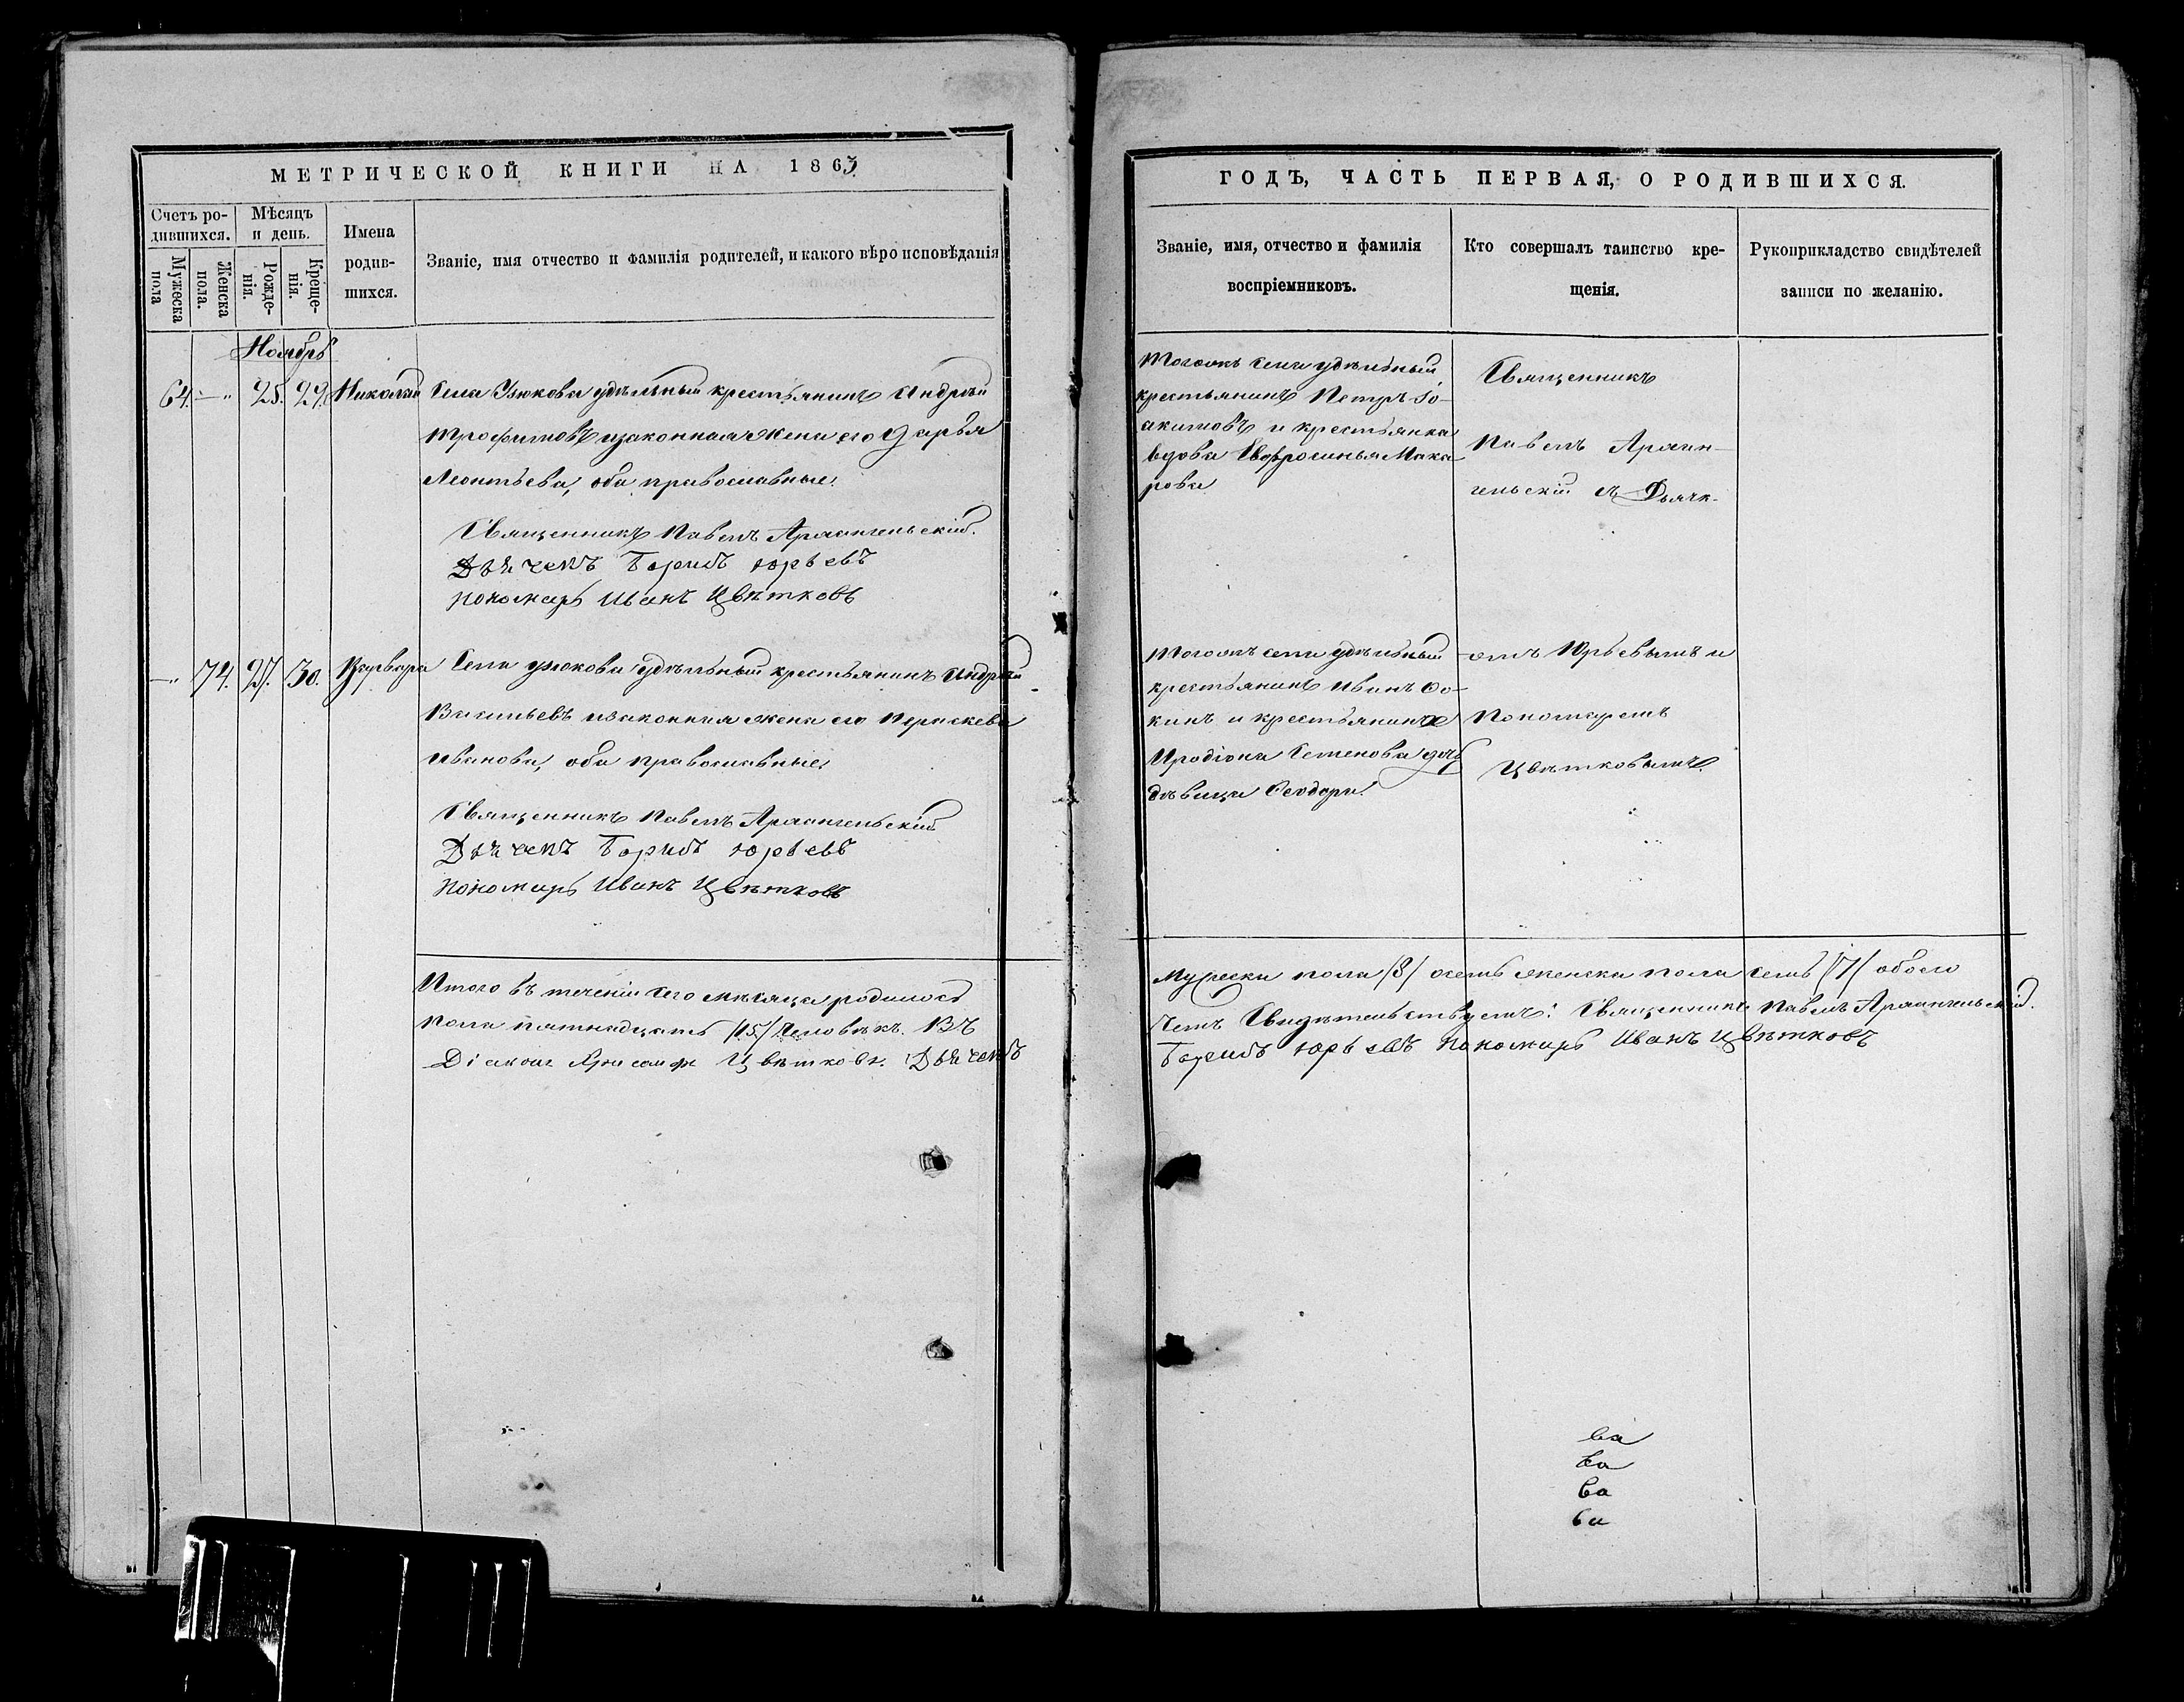 МЕТРИЧЕСКОЙ КНИГИ НА 1863
Счетъ ро-
дившихся.
Мѣсяцъ
и день.
Имена
родив-
шихся.
Званіе, имя отчество и фамилія родителей, и какого вѣроисповѣданія
Мужеска
пола
Женска
пола.
Рожде-
нія.
Креще-
нія.
Ноябрь
64. — „ 28. 29. Николай Села Узюкова удѣльный крестьянинъ Андрей
Трофимовъ и законная жена его Дарья
Леонтьева, оба православные.
Священникъ Павелъ Архангельскій.
Дьячекъ Борисъ Юрьевъ
пономарь Иванъ Цвѣтковъ
— „ 74. 27. 30. Варвара Села Узюкова удѣльный крестьянинъ Андрей
Васильевъ и законная жена его Параскева
Иванова, оба православные.
Священникъ Павелъ Архангельскій
Дьячекъ Борисъ Юрьевъ
Пономарь Иванъ Цвѣтковъ
Итого въ теченіи сего мѣсяца родилось
пола пятнадцать /15/ человѣкъ. Въ
Діаконъ Цвѣтковъ. Дьячекъ
ГОДЪ, ЧАСТЬ ПЕРВАЯ, О РОДИВШИХСЯ.
Званіе, имя, отчество и фамилія
воспріемниковъ.
Кто совершалъ таинство кре-
щенія.
Рукоприкладство свидѣтелей
записи по желанію.
Тогожъ села удѣльный
крестьянинъ Петръ Іо-
акимовъ и крестьянка
вдова Евфросинья Мака-
рова
Священникъ
Павелъ Архан-
гельскій съ Дьячк-
Тогожъ села удѣльный
крестьянинъ Иванъ Фо-
кинъ и крестьянина
Иродіона Семенова дочь
дѣвица Феодора.
омъ Юрьевымъ и
Пономаремъ
Цвѣтковымъ.
Мужеска пола /8/ осемь женска пола семь /7/ обоего
чемъ Свидѣтельствуемъ: Священникъ Павелъ Архангельскій.
Борисъ Юрьевъ Пономарь Иванъ Цвѣтковъ
ва
ва
ва
ва